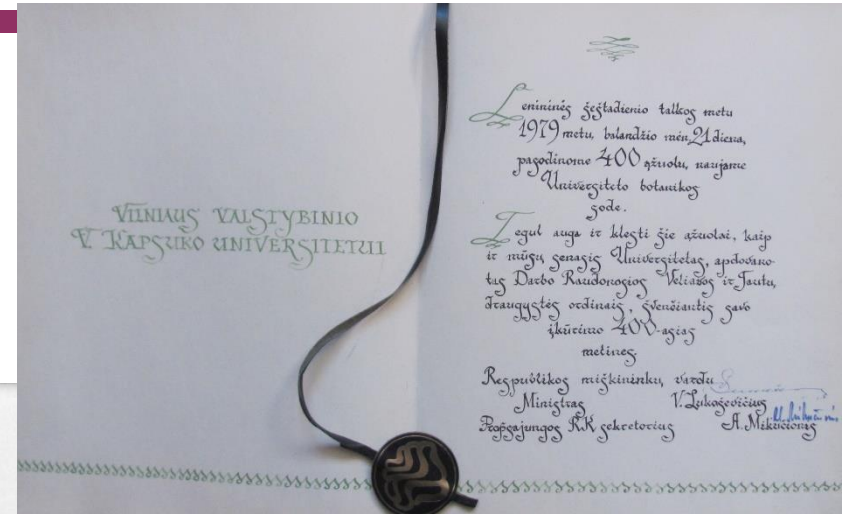 VILNIAUS VALSTYBINIO
V. KAPSUKO UNIVERSITETUI
Lenininės šeštadienio talkos metu
1979 metų, balandžio mėn. 21 diena,
pasodinome 400 ąžuolų, naujame
Universiteto botanikos
sode.
Tegul auga ir klesti šie ąžuolai, kaip
ir mūsų senasis Universitetas, apdovano-
tas Darbo Raudonosios Vėliavos ir Tautų
draugystės ordinais, švenčiantis savo
įkūrimo 400-ąsias
metines.
Respublikos miškininkų vardu
Ministras V. Lukoševičius
Profsąjungos R.K sekretorius A. Mikučionis